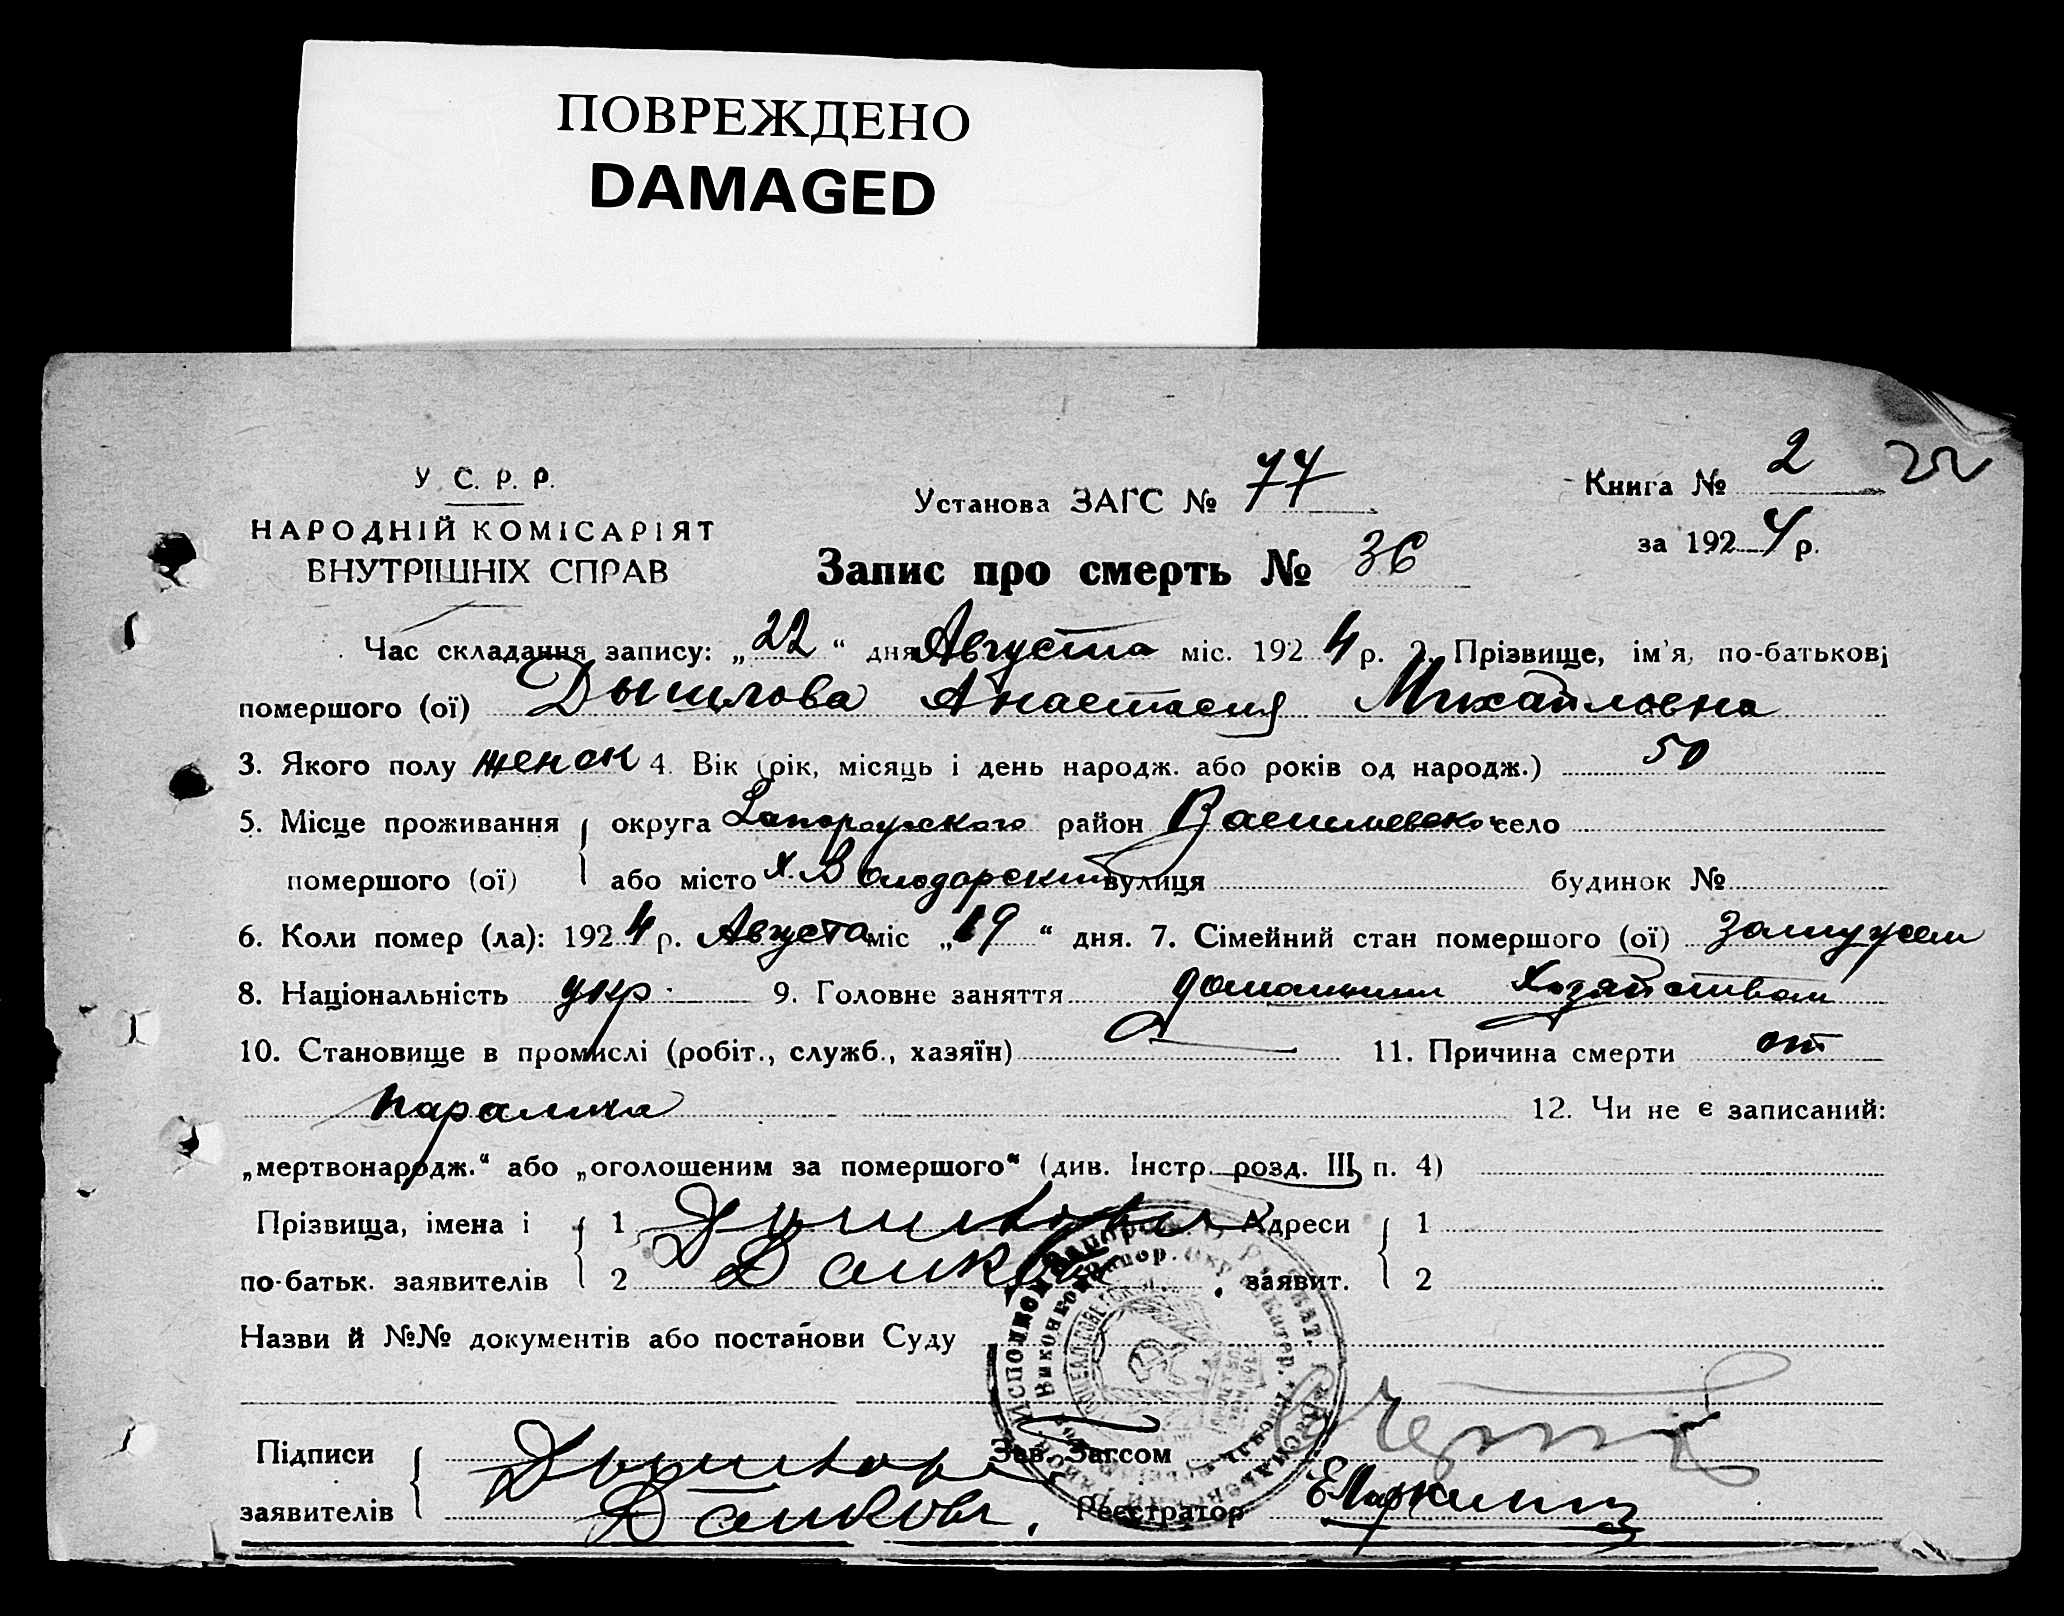 ПОВРЕЖДЕНО
DAMAGED
У. С. Р. Р.
НАРОДНІЙ КОМІСАРІЯТ
ВНУТРІШНІХ СПРАВ
Установа ЗАГС № 77
Книга № 2 22
за 1924 р.
Запис про смерть № 36
Час складання запису: „22“ дня Августа міс. 1924 р. 2. Прізвище, ім'я, по-батькові
помершого (ої) Дышлова Анастасия Михайловна
3. Якого полу женск 4. Вік (рік, місяць і день народж. або років од народж.) 50
5. Місце проживання округа Запорожского район Васильевско село
помершого (ої) або місто х. Володарский вулиця будинок №
6. Коли помер (ла): 1924 р. Августа міс „19“ дня. 7. Сімейний стан помершого (ої) замужем
8. Національність укр. 9. Головне заняття домашним хозяйством
10. Становище в промислі (робіт., служб., хазяїн) 11. Причина смерти от
паралича 12. Чи не є записаний:
„мертвонародж.“ або „оголошеним за помершого“ (див. Інстр. розд. III п. 4)
Прізвища, імена і 1 Адреси 1
по-батьк. заявителів 2 заявит. 2
Назви й №№ документів або постанови Суду
Підписи Зав. Загсом
заявителів Реєстратор